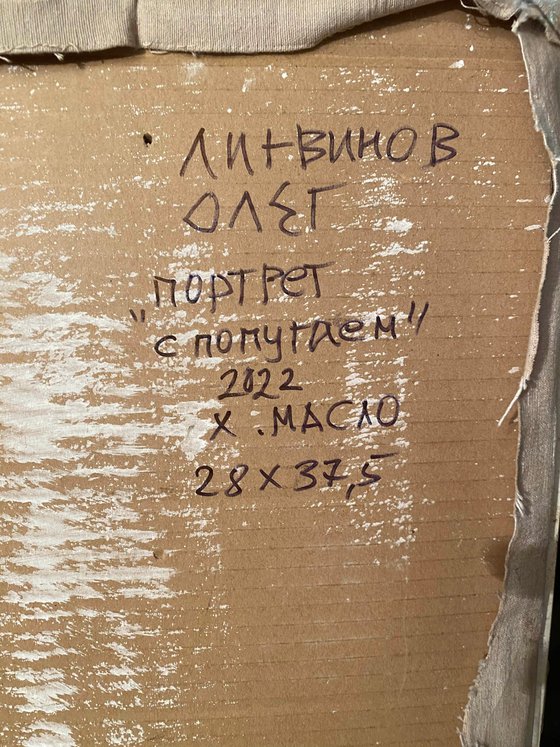 ЛИТВИНОВ
ОЛЕГ
ПОРТРЕТ
"с попугаем"
2022
Х. МАСЛО
28 х 37,5